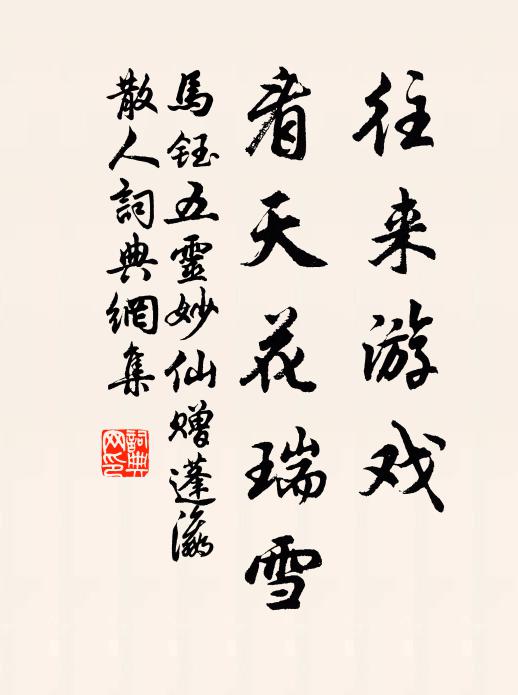 往来游戏
看天花瑞雪
馬鈺五靈妙仙赠蓬瀛
散人詞典網集
詞典
网印